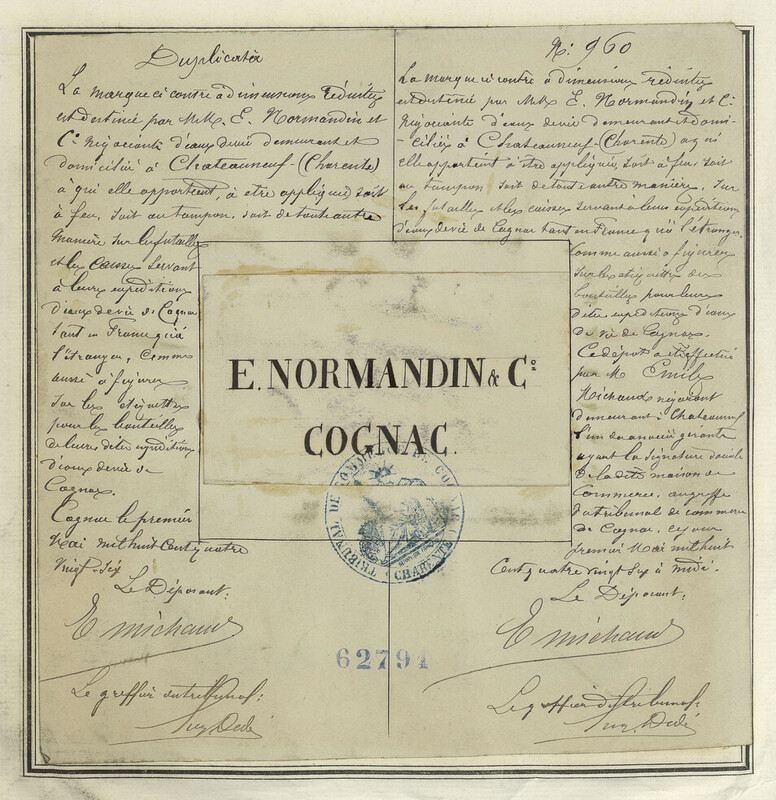 Duplicata
La marque ci contre a dimensions réduites
est destinée par M.M. E. Normandin et
Cº négociants d'eaux devie demeurant et
domicilié à Chateauneuf-(Charente)
à qui elle appartient, à etre appliquée soit
à feu, soit au tampon, soit de toute autre
manière sur les futailles
et les caisses servant
à leurs expéditions
d'eaux devie de Cognac
tant en France qu'à
l'étranger, comme
aussi à figurer
sur les étiquettes
pour les bouteilles
de leurs dites expéditions
d'eaux devie de
Cognac.
Cognac le premier
Mai mil huit cent quatre
Vingt-Six
Le Déposant:
E Michaud
Le greffier du tribunal:
Dedé
Nº: 960
La marque ci contre a dimensions réduites
est destinée par M.M. E. Normandin et Cº
négociants d'eaux devie demeurant et domi-
-ciliés à Chateauneuf-(Charente) à qui
elle appartient à être appliquée, soit à feu, soit
au tampon soit de toute autre manière, sur
les futailles et les caisses servant à leurs expéditions
d'eaux devie de Cognac tant en France qu'à l'étranger
comme aussi à figurer
sur les étiquettes des
bouteilles pour leurs
dites expéditions d'eaux
de vie de Cognac.
Ce dépôt a été effectué
par M. Emile
Michaud négociant
demeurant à Chateauneuf
l'un des associés gerants
ayant la signature sociale
de la dite maison de
Commerce, au greffe
du tribunal de commerce
de Cognac, ce jour
premier Mai mil huit
Cent quatre vingt Six à midi.
Le Déposant:
E Michaud
Le greffier du tribunal:
Dedé
E. NORMANDIN & Cº
COGNAC.
TRIBUNAL DE COMMERCE DE COGNAC
CHARENTE
62791